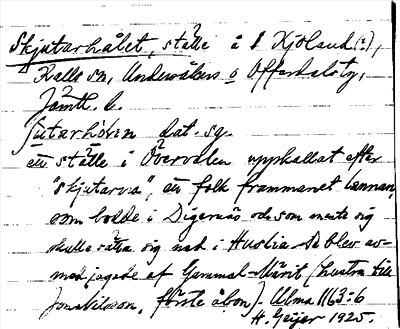 Skjutarhålet, ställe å s Kjöland(:),
Kalls sn, Undersåkers o Offerdals tg,
Jämtl. l.
dat. sg.
ett ställe i Övervalen uppkallat efter
"skjutarna", ett folk frammanet
som bodde i Digernäs och som mente sig
skulle sätta sig ned i Huslia de blev av-
med jagade af Gammal-Märit (hustru till
Jonas Nilsson, förste åbon). Ulma 1163:6
H. Geijer 1925.